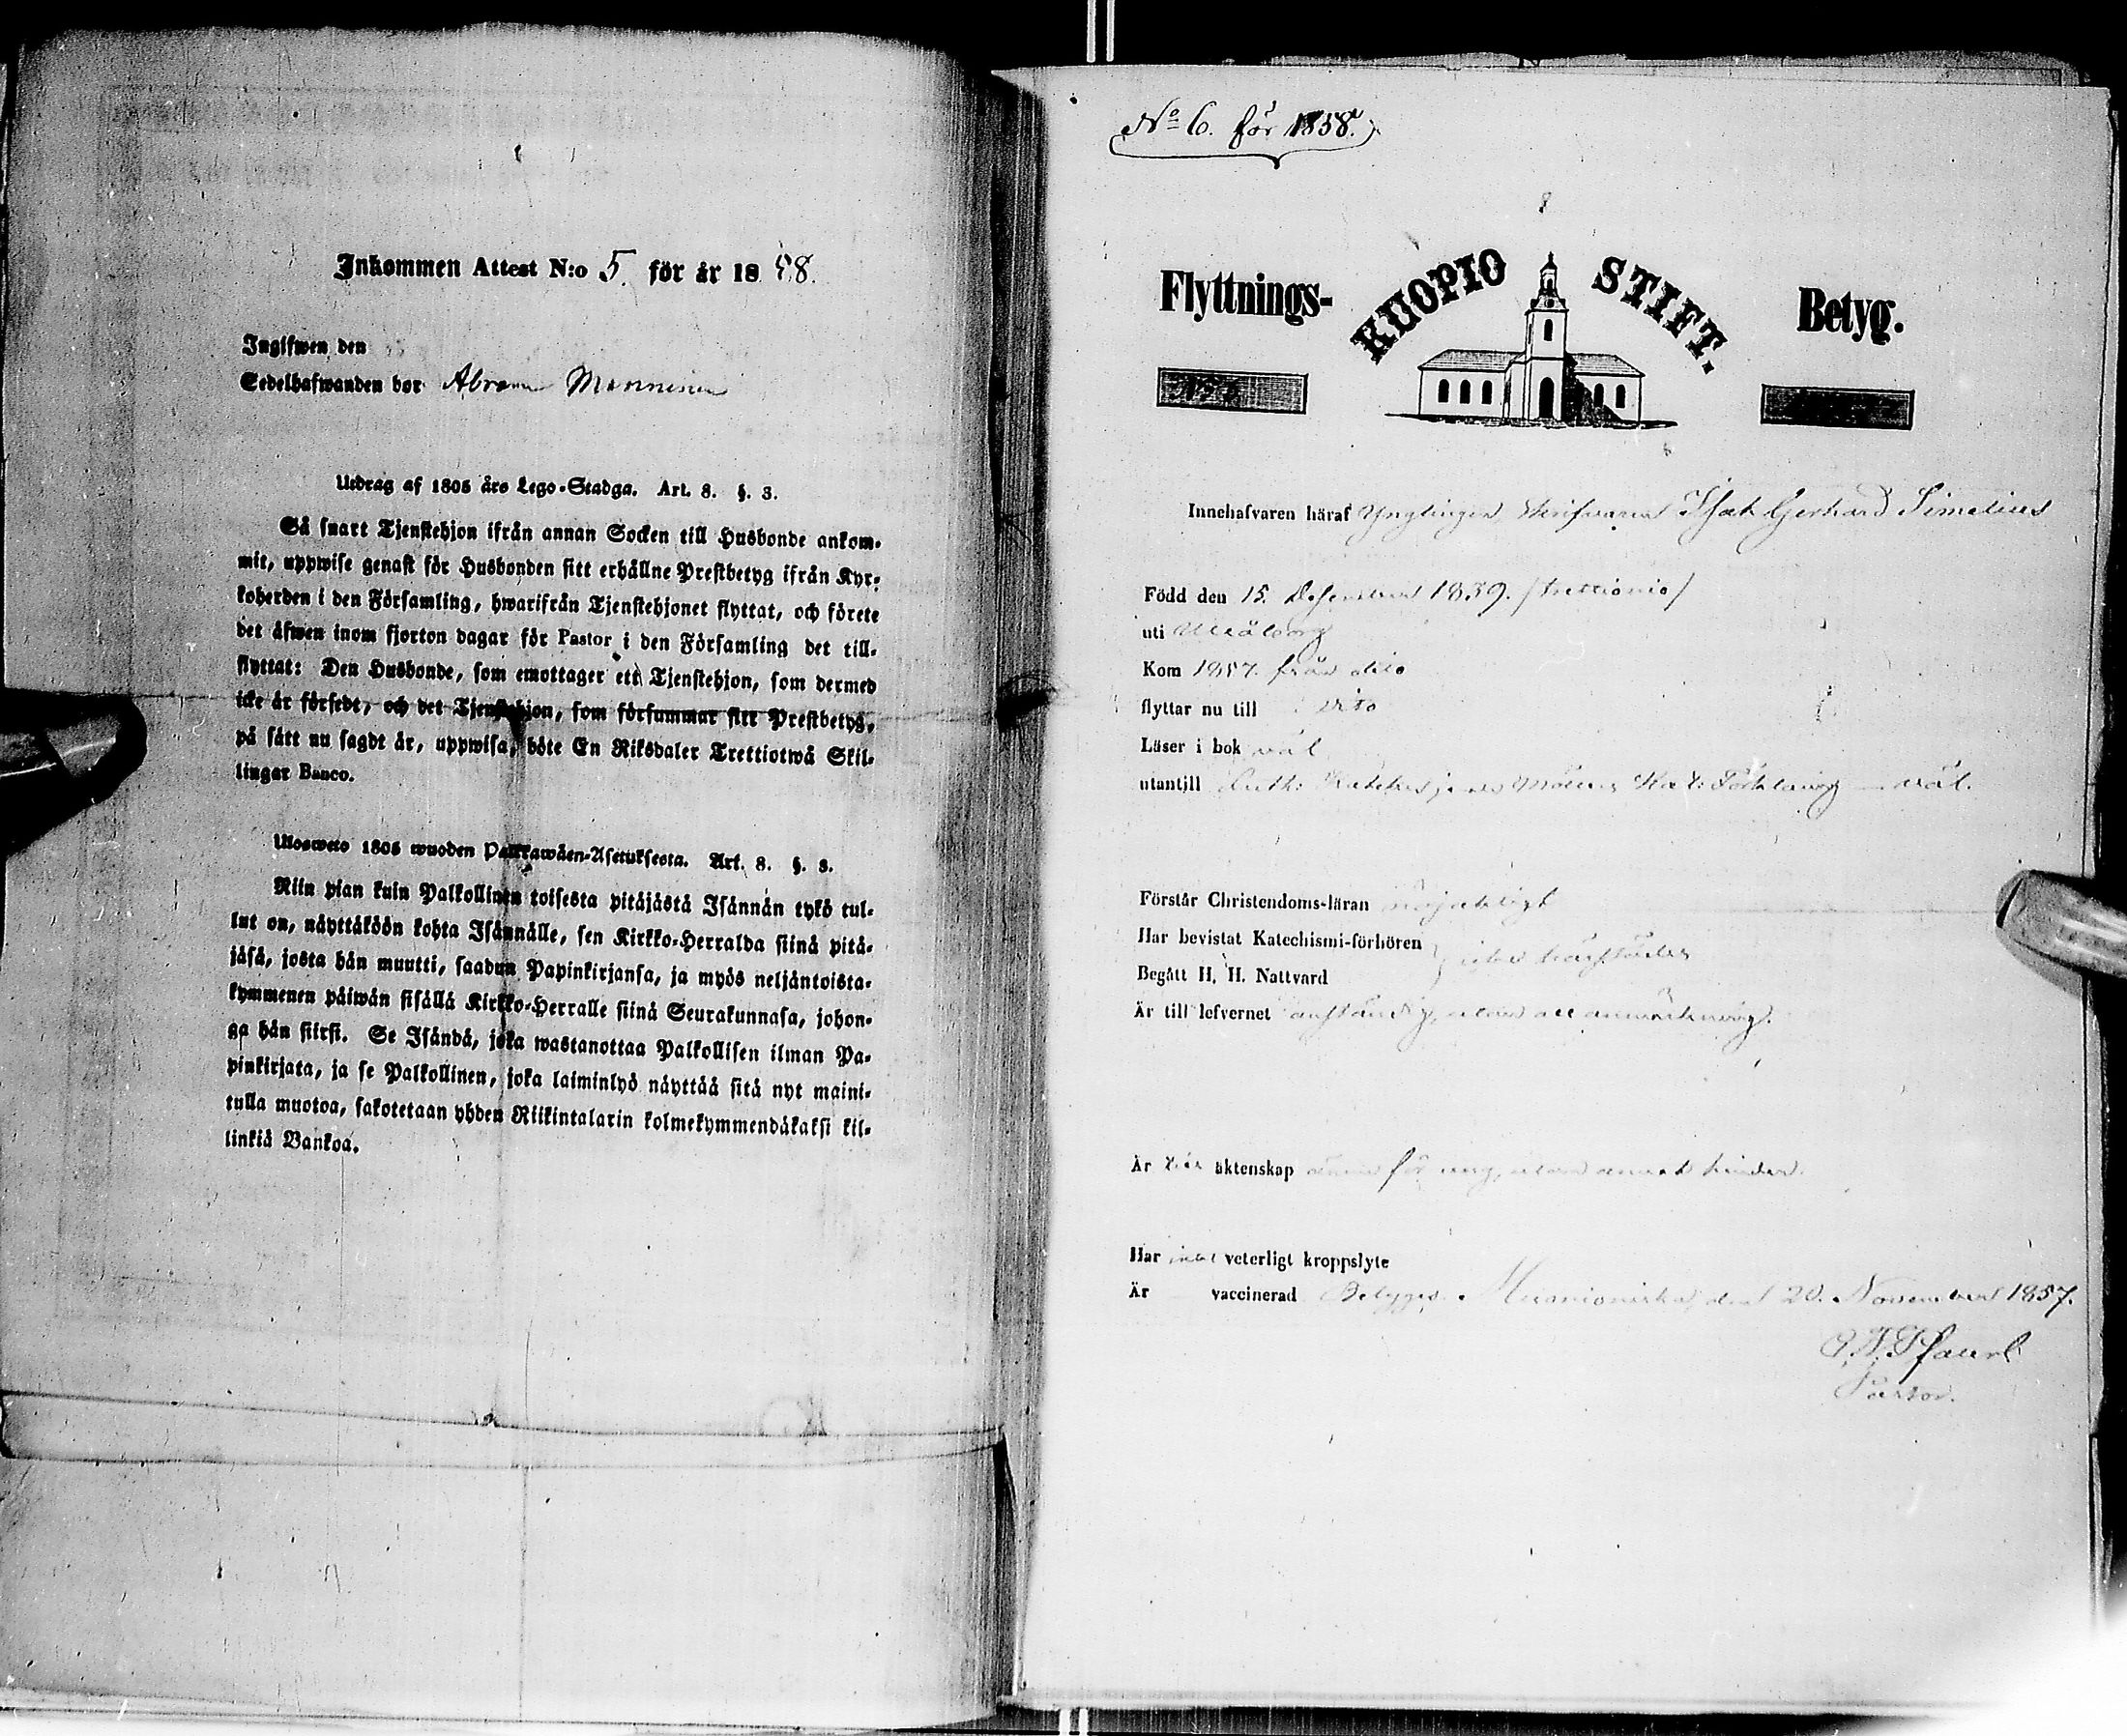 Inkommen Attest N:o 5. för år 1858.
Ingifwen den
Sedelhafwanden bor Abram Manninen
Utdrag af 1805 års Lego-Stadga. Art. 8. §. 3.
Så snart Tjenstehjon ifrån annan Socken till Husbonde ankom-
mit, uppwise genast för Husbonden sitt erhållne Prestbetyg ifrån Kyr-
koherden i den Församling, hwarifrån Tjenstehjonet flyttat, och förete
det äfwen inom fjorton dagar för Pastor i den Församling det till-
flyttat: Den Husbonde, som emottager ett Tjenstehjon, som dermed
icke är försedt, och det Tjenstehjon, som försummar sitt Prestbetyg,
på sätt nu sagdt är, uppwisa, böte En Riksdaler Trettiotwå Skil-
lingar Banco.
Ulosweto 1805 wuoden Palkkawäen-Asetuksesta. Art. 8. §. 3.
Niin pian kuin Palkollinen toisesta pitäjästä Isännän tykö tul-
lut on, näyttäköön kohta Isännälle, sen Kirkko-Herralda siinä pitä-
jäsä, josta hän muutti, saadun Papinkirjansa, ja myös neljäntoista-
kymmenen päiwän sisällä Kirkko-Herralle siinä Seurakunnasa, johon-
ga hän siirsi. Se Isändä, joka wastanottaa Palkollisen ilman Pa-
pinkirjata, ja se Palkollinen, joka laiminlyö näyttää sitä nyt maini-
tulla muotoa, sakotetaan yhden Riikintalarin kolmekymmendäkaksi kil-
linkiä Bankoa.
No 6. för 1858.
Flyttnings- KUOPIO STIFT. Betyg.
Innehafvaren häraf Ynglingen, Isak Gerhard Simelius
Född den 15. December 1839. /trettionio/
uti Uleåborg
Kom 1857. från dito
flyttar nu till dito
Läser i bok väl
utantill Luth: Katekes jemte Möllers Kat: Förklaring väl.
Förstår Christendoms-läran nöjaktigt
Har bevistat Katechismi-förhören
Begått H. H. Nattvard
Är till lefvernet anständig, utan all anmärkning.
Är till äktenskap ännu för ung, utan annat hinder.
Har intet veterligt kroppslyte
Är vaccinerad Betygar. Muonioniska, den 20. November 1857.
Pastor.